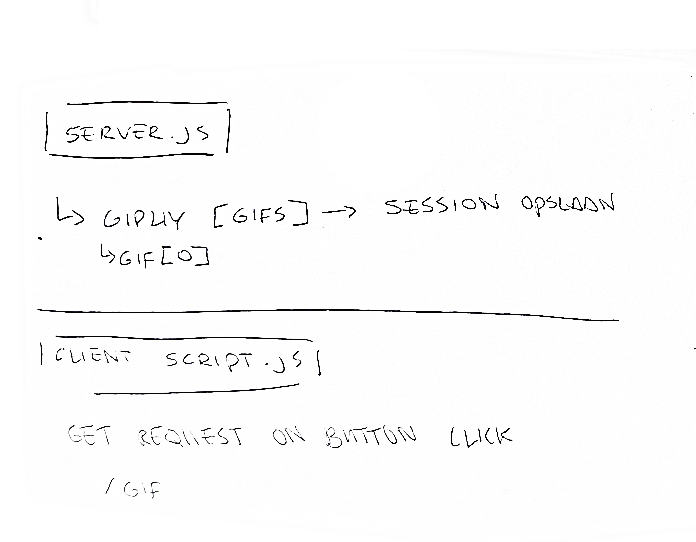 SERVER.JS
↳ GIPHY [GIFS] → SESSION OPSLAAN
↳ GIF[0]
CLIENT SCRIPT.JS
GET REQUEST ON BUTTON CLICK
/GIF